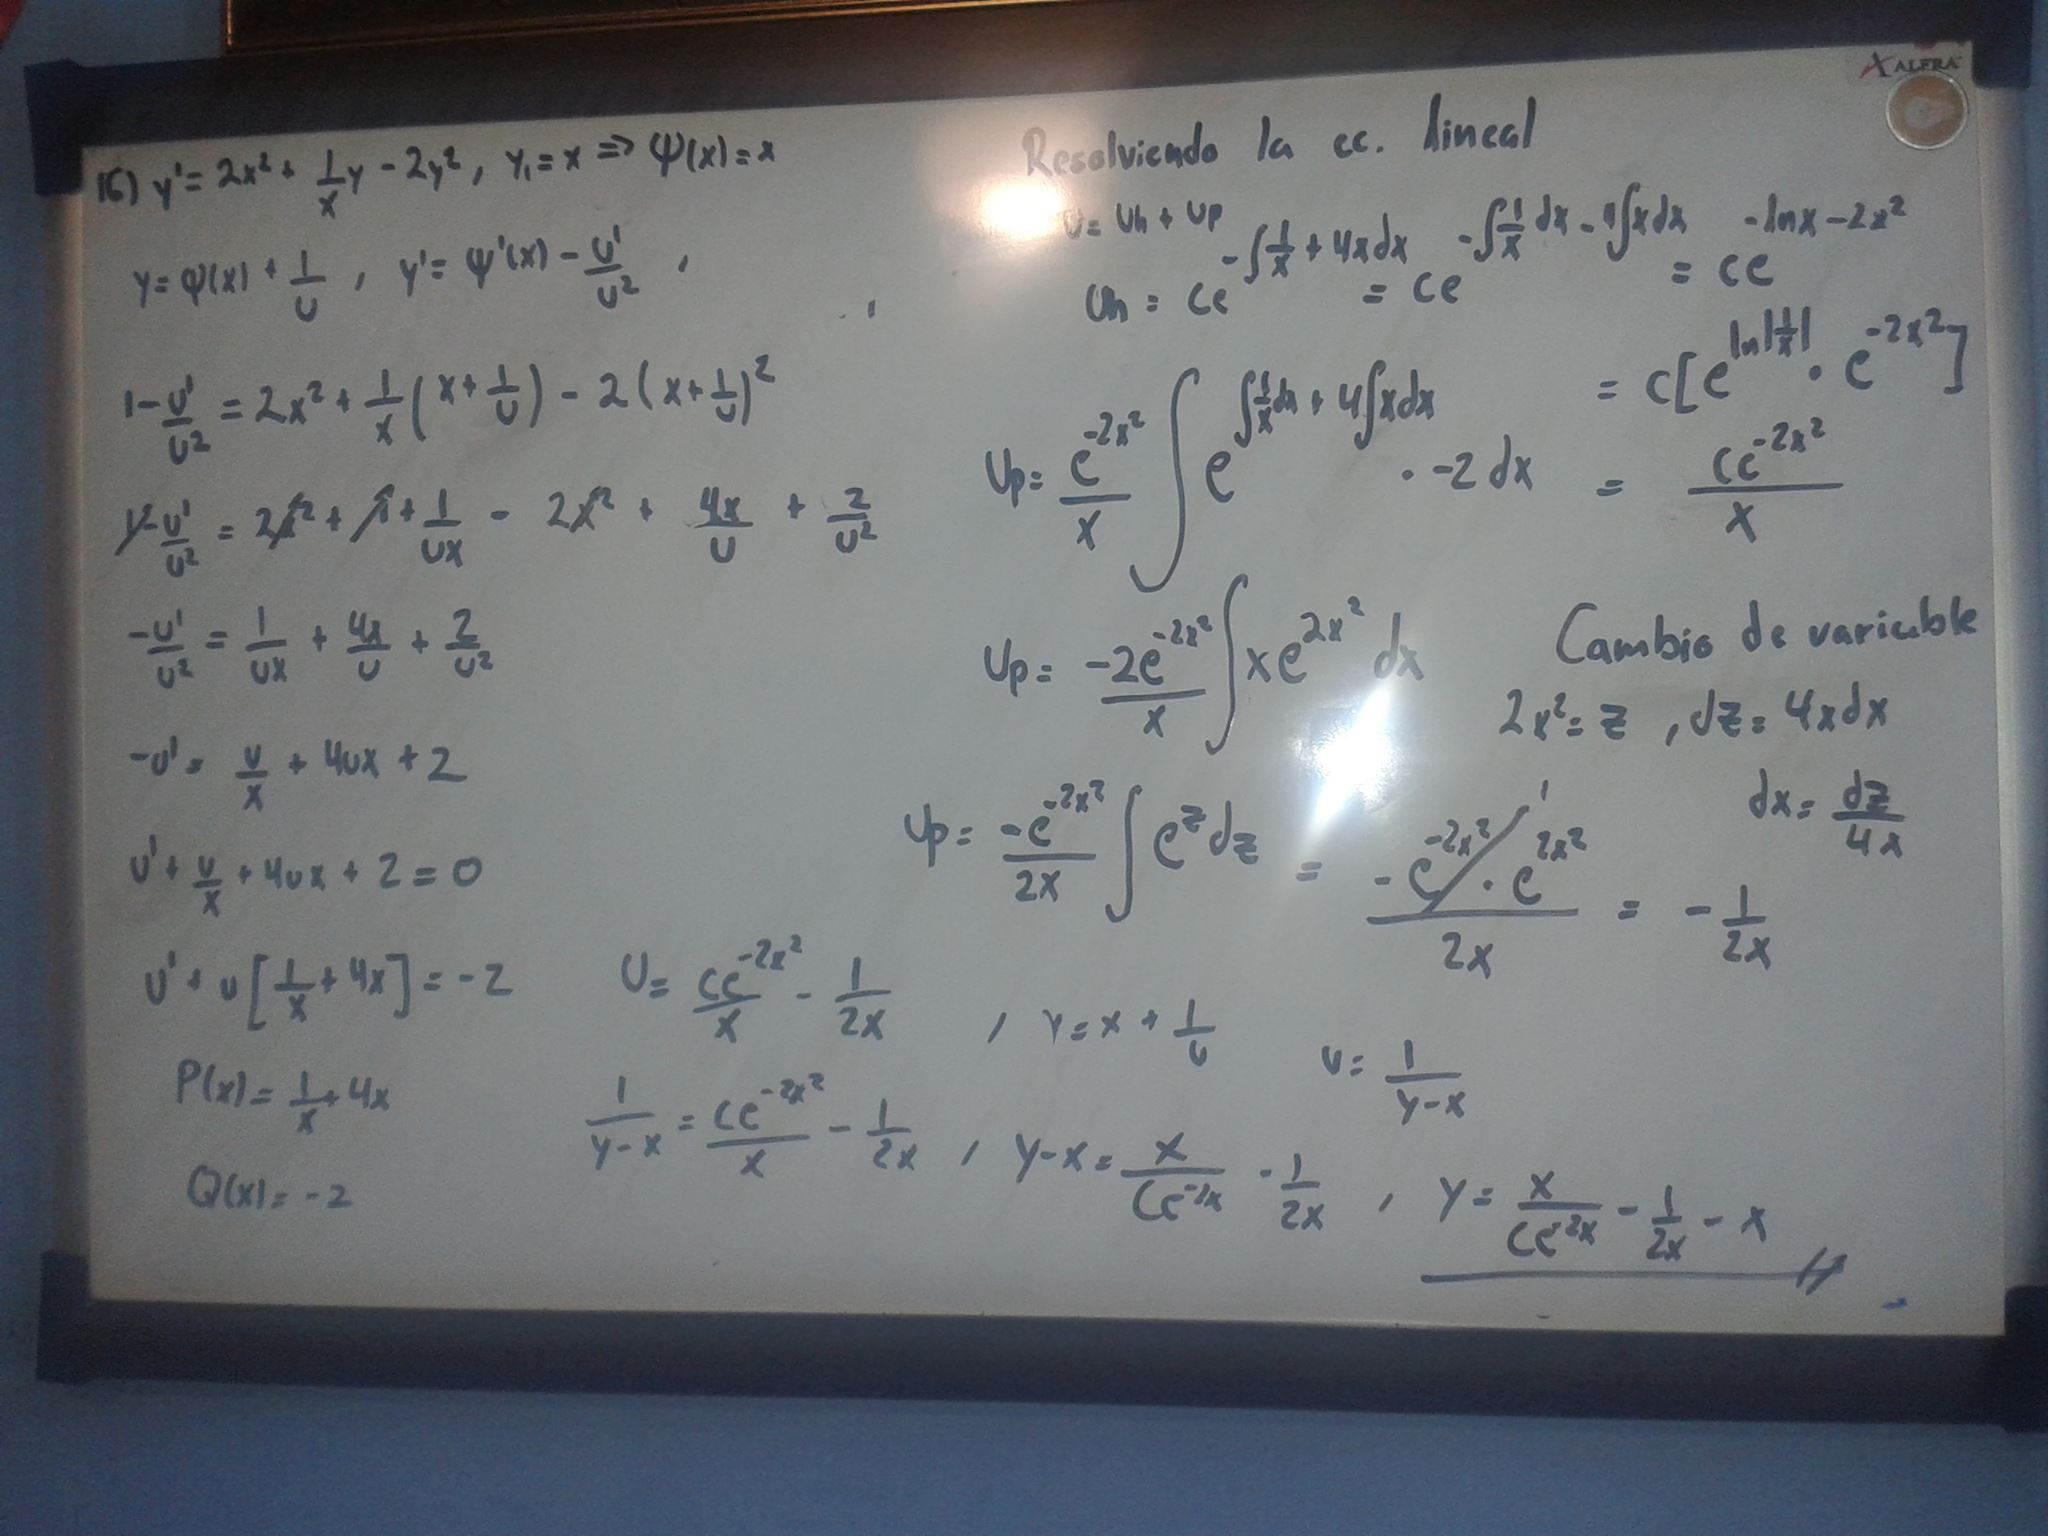 ALFRA
16) y' = 2x² + 1/x y - 2y², y₁ = x ⇒ Ψ(x) = x
y = φ(x) + 1/u , y' = φ'(x) - u'/u² ,
1 - u'/u² = 2x² + 1/x (x + 1/u) - 2(x + 1/u)²
1 - u'/u² = 2x² + 1 + 1/ux - 2x² + 4x/u + 2/u²
-u'/u² = 1/ux + 4x/u + 2/u²
-u' = u/x + 4ux + 2
u' + u/x + 4ux + 2 = 0
u' + u[1/x + 4x] = -2
P(x) = 1/x + 4x
Q(x) = -2
Resolviendo la ec. lineal
U = Uh + Up
Uh = ce^(-∫1/x + 4x dx) = ce^(-∫1/x dx - 4∫x dx) = ce^(-lnx - 2x²)
= c[e^(ln|1/x|) · e^(-2x²)]
= ce^(-2x²)/x
Up = e^(-2x²)/x ∫ e^(∫1/x dx + 4∫x dx) · -2 dx
Up = -2e^(-2x²)/x ∫ xe^(2x²) dx
Cambio de variable
2x² = z , dz = 4x dx
dx = dz/4x
Up = -e^(-2x²)/2x ∫ e^z dz = -e^(-2x²) · e^(2x²) / 2x = -1/2x
1
U = ce^(-2x²)/x - 1/2x , y = x + 1/u
u = 1/(y-x)
1/(y-x) = ce^(-2x²)/x - 1/2x , y-x = x/ce^(-2x) - 1/2x , y = x/ce^(-2x) - 1/2x - x